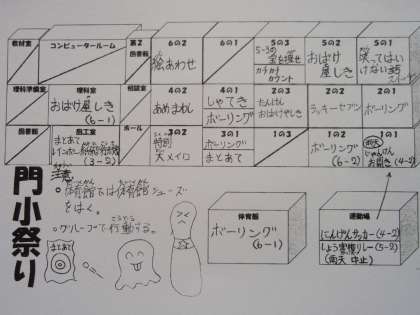 教材室
コンピュータールーム
第2図書館
6の2
絵あわせ
6の1
5の3
5-3の宝を探せ
カチカチカウント
5の2
おばけ屋しき
5の1
笑ってはいけない
理科準備室
理科室
おばけ屋しき
(6-1)
相談室
4の2
あめまわし
4の1
しゃてき
ボーリング
2の3
たんけんおばけやしき
2の2
ラッキーセブン
2の1
ボーリング
図書館
図工室
まとあて
(3-2)
ホール
3の2
特別
大メイロ
3の1
ボーリング
まとあて
1の3
1の2
ボーリング
(6-2)
1の1
雨天
じゃんけん
(4-2)
門小祭り
注意
・体育館では体育館シューズをはく。
・グループで行動する。
まとあて
体育館
ボーリング
(6-1)
運動場
にんげんサッカー(4-2)
しょう害物リレー(5-2)
(雨天 中止)